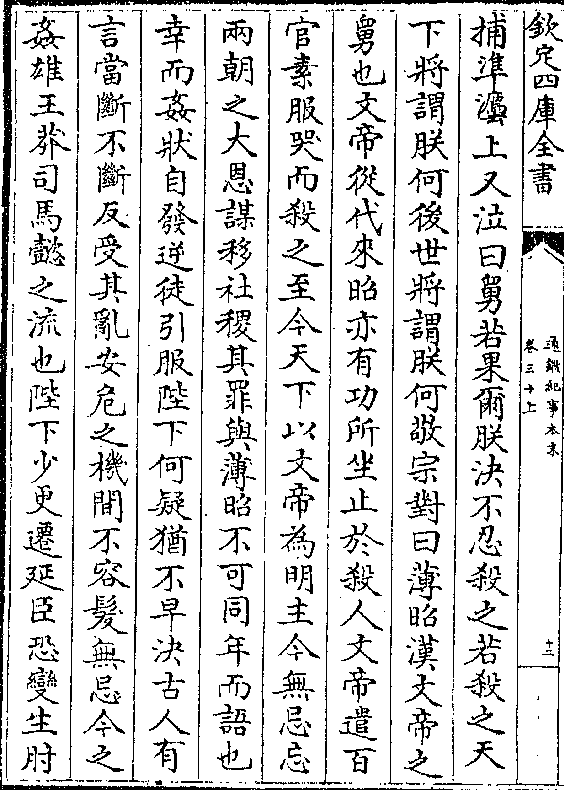 欽定四庫全書
通鑑紀事本末
卷三十上
十三
捕準鹽上又泣曰舅若果爾朕決不忍殺之若殺之天
下將謂朕何後世將謂朕何敬宗對曰薄昭漢文帝之
舅也文帝從代來昭亦有功所坐止於殺人文帝遣百
官素服哭而殺之至今天下以文帝為明主今無忌忘
兩朝之大恩謀移社稷其罪與薄昭不可同年而語也
幸而姦狀自發逆徒引服陛下何疑猶不早決古人有
言當斷不斷反受其亂安危之機間不容髮無忌今之
姦雄王莽司馬懿之流也陛下少更遷延臣恐變生肘